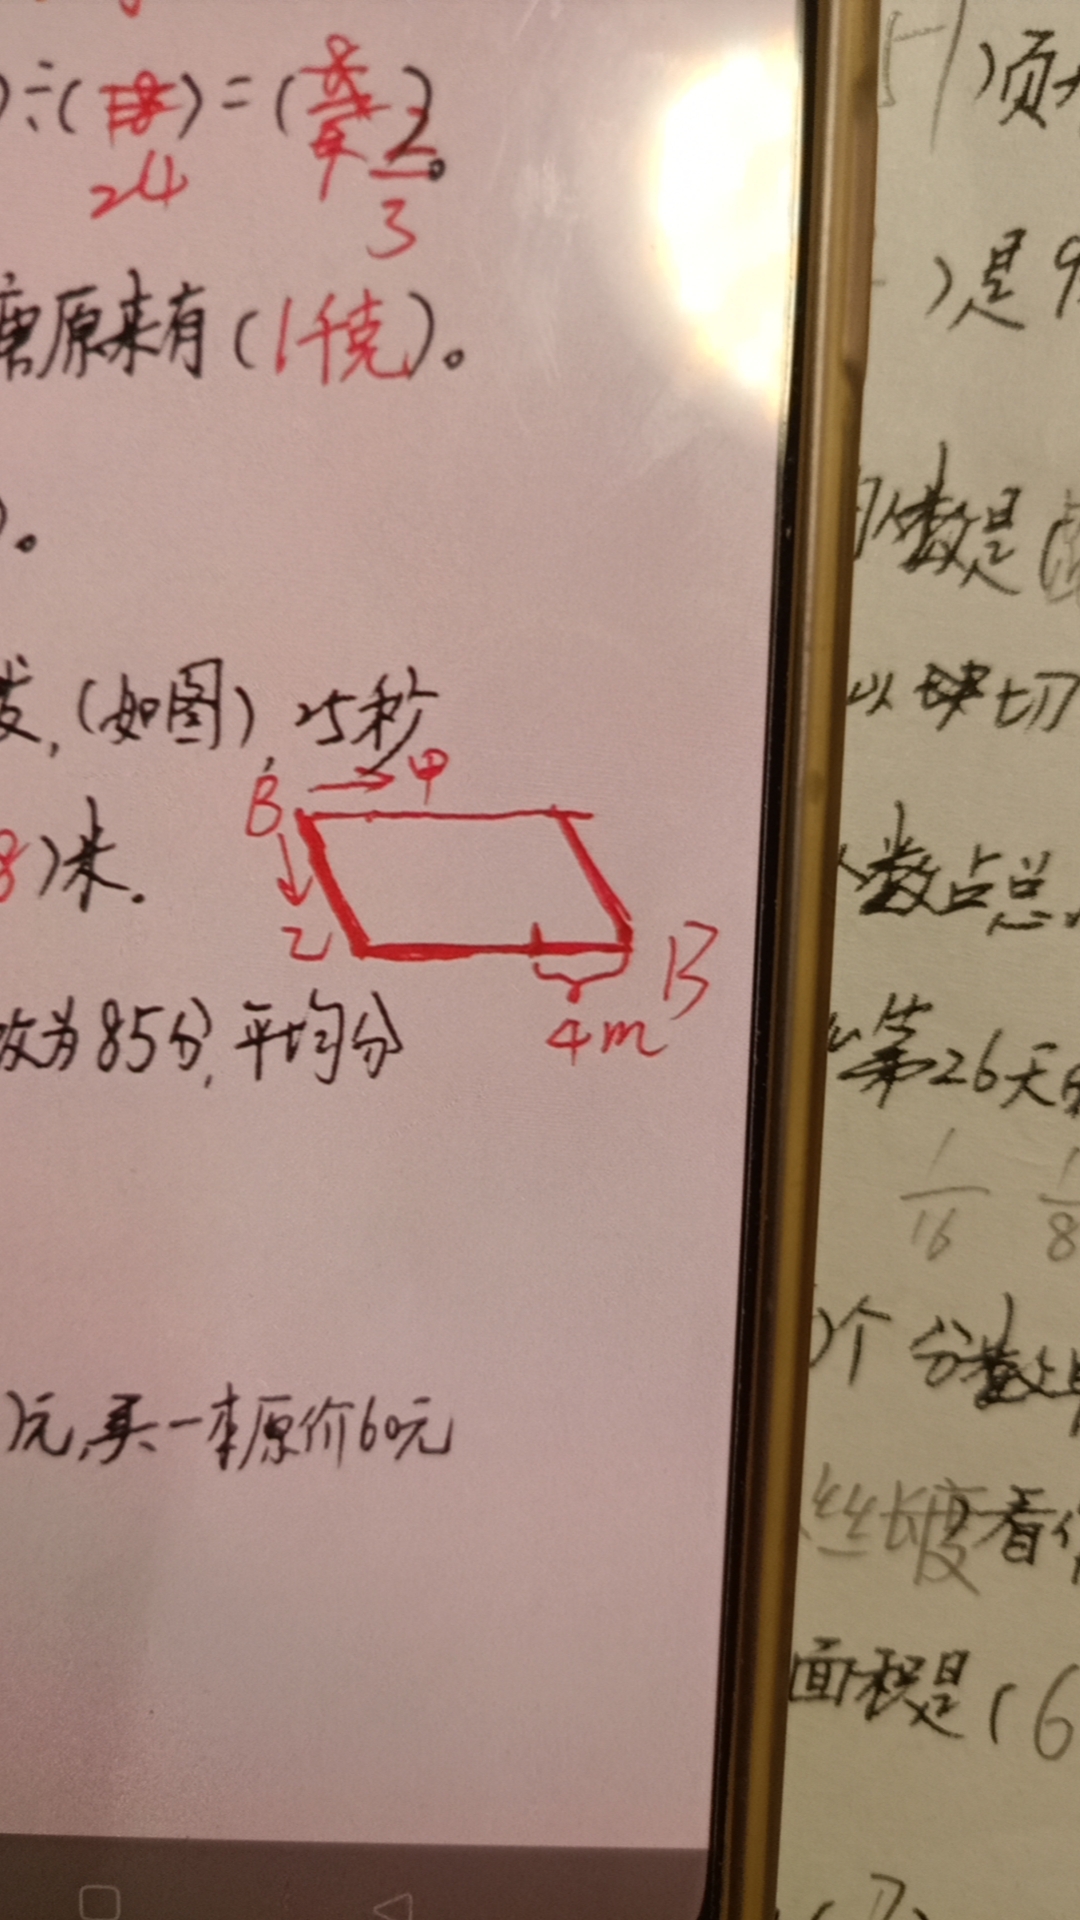 )÷( )=( 2
24
3
原来有(1千克)。
)。
(如图),25秒
B 甲
8)米.
乙
B
4m
改为85分,平均分
)元,买一本原价60元
)页
)是9
数是(
以 切
数占总
第26天
1/16 1/8
)个分数
丝长度看
面积是(6